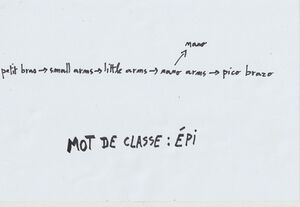 mano
petit bras → small arms → little arms → nano arms → pico brazo
MOT DE CLASSE : ÉPI